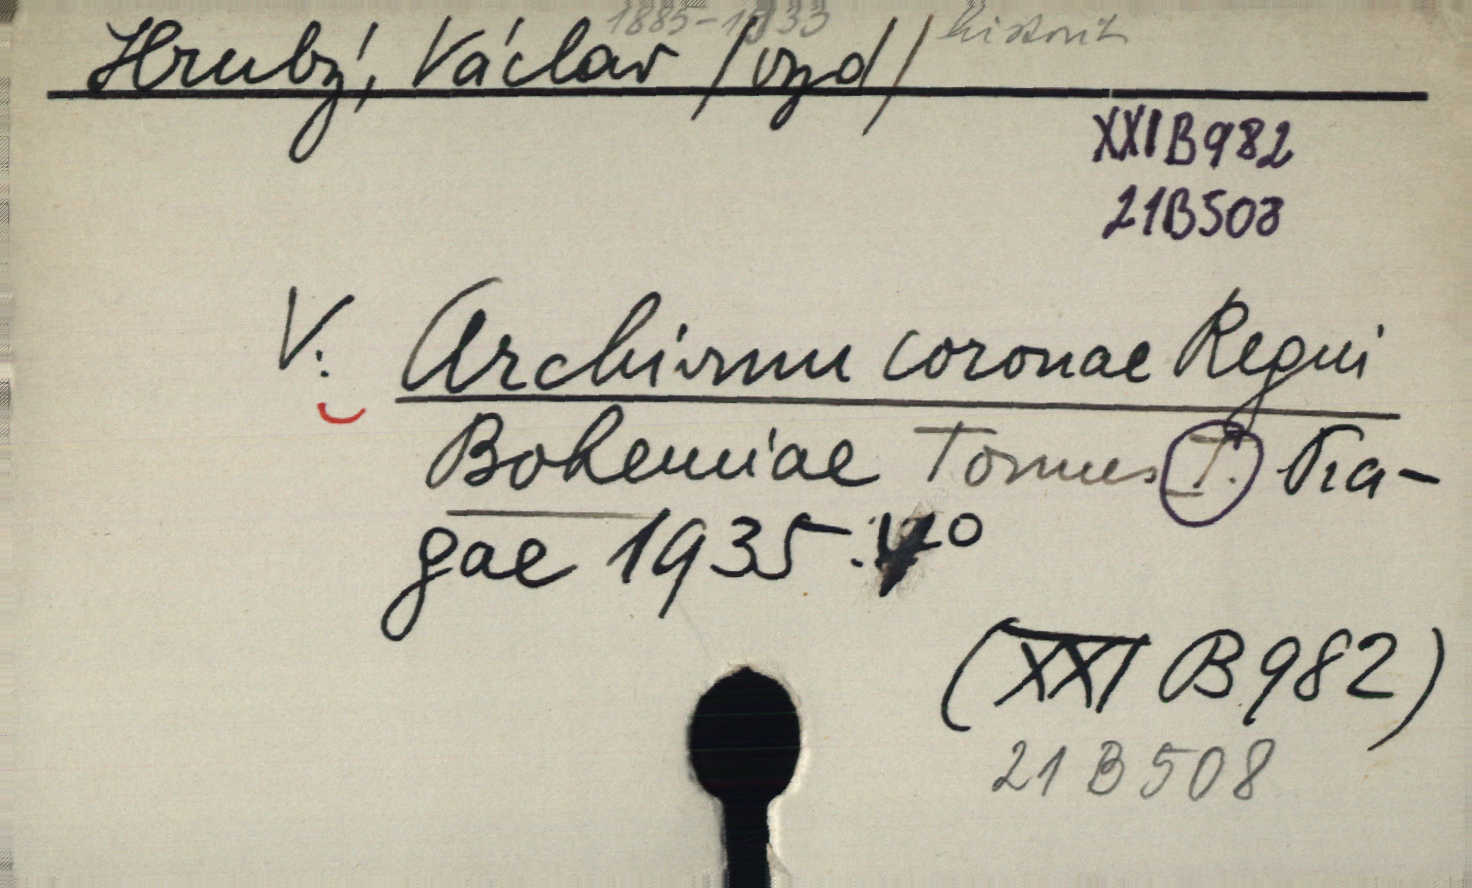 1885-1933 historik
Hrubý, Václav /vyd/
XXI B 982
21 B 508
V. Archivum coronae Regni
Bohemiae Tomus I. Pra-
gae 1935. 4°
(XXI B 982)
21 B 508